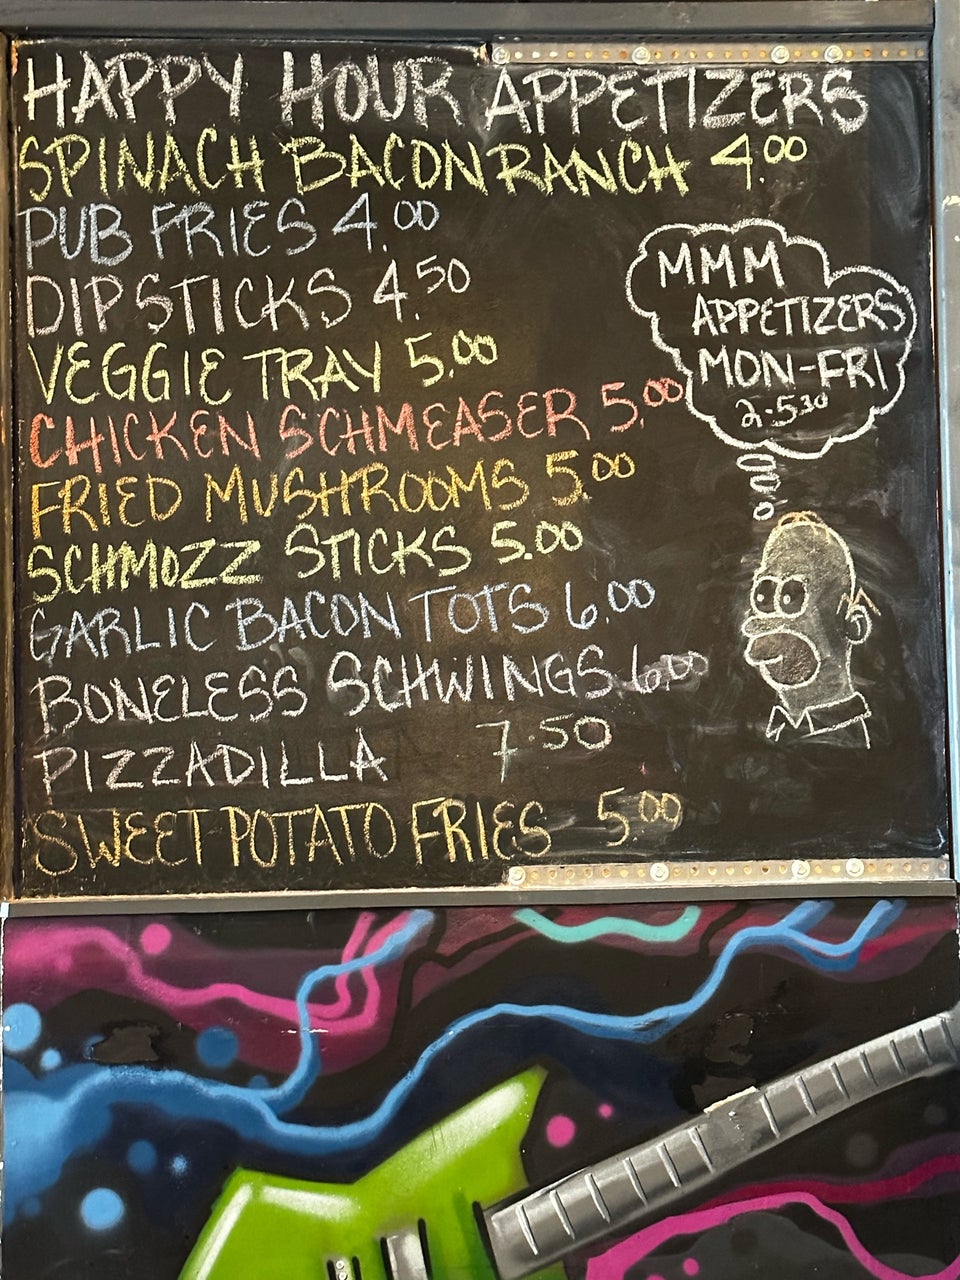 HAPPY HOUR APPETIZERS
SPINACH BACON RANCH 4.00
PUB FRIES 4.00
DIPSTICKS 4.50
VEGGIE TRAY 5.00
CHICKEN SCHMEASER 5.00
FRIED MUSHROOMS 5.00
SCHMOZZ STICKS 5.00
GARLIC BACON TOTS 6.00
BONELESS SCHWINGS 6.00
PIZZADILLA 7.50
SWEET POTATO FRIES 5.00
MMM
APPETIZERS
MON-FRI
2-530